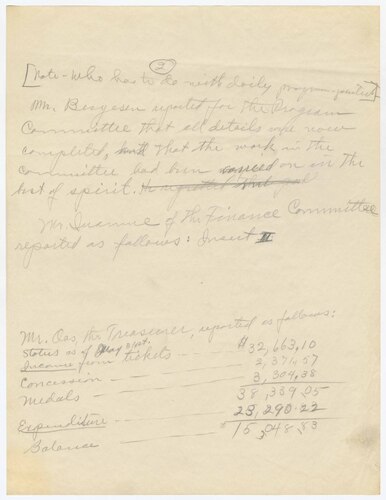 2
[Note - Who has to do with daily program - printed]
Mr. Borgesen reported for the Program
Committee that all details were now
completed, that the work in the
committee had been carried on in the
best of spirit. He regretted that
Mr. of the Finance Committee
reported as follows: Insert II
Mr. Oas, the Treasurer, reported as follows:
Status as of May 31st.
Income from tickets — $32,663.10
Concession — 2,371.57
Medals — 3,304.38
38,339.05
Expenditure — 23,290.22
Balance — 15,048.83